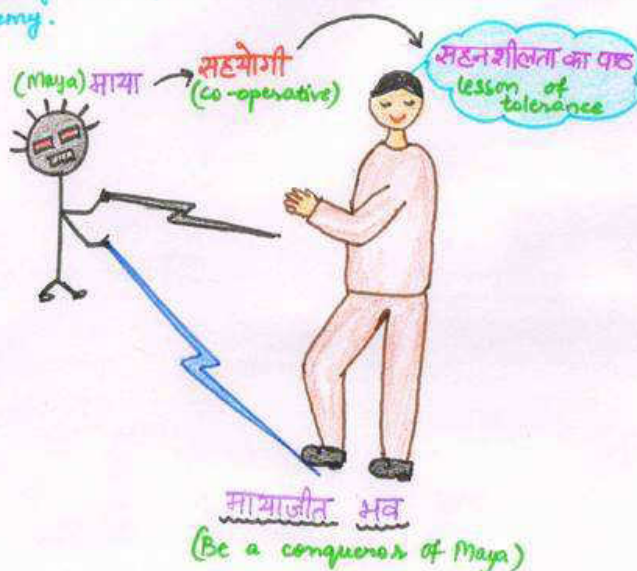 emy.
(Maya) माया
सहयोगी
(co-operative)
सहनशीलता का पाठ
lesson of
tolerance
मायाजीत भव
(Be a conqueror of Maya)